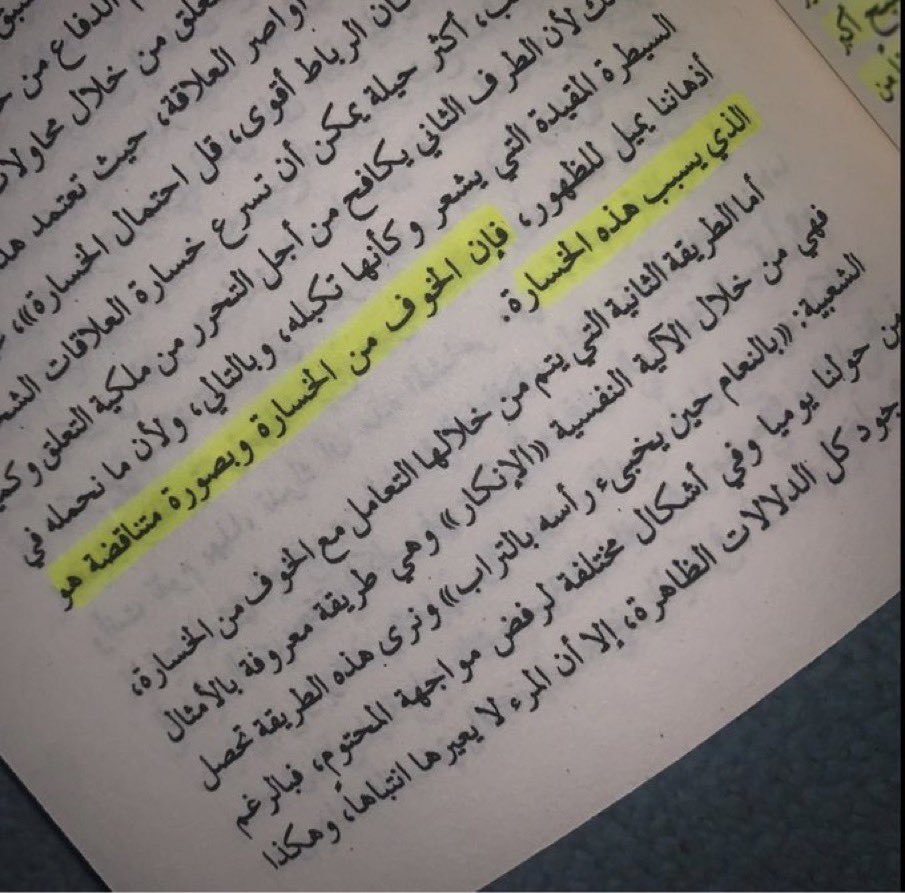 الدفاع من
من خلال محاولات
أواصر العلاقة، حيث تعتمد
الرباط أقوى، قل احتمال الخسارة»،
أكثر حيلة يمكن أن تسرع خسارة العلاقات
لأن الطرف الثاني يكافح من أجل التحرر من ملكية التعلق
السيطرة المقيدة التي يشعر وكأنها تكبله، وبالتالي، ولأن ما نحمله في
أذهاننا يميل للظهور، فإن الخوف من الخسارة وبصورة متناقضة هو
الذي يسبب هذه الخسارة.
أما الطريقة الثانية التي يتم من خلالها التعامل مع الخوف من الخسارة،
فهي من خلال الآلية النفسية «الإنكار» وهي طريقة معروفة بالأمثال
الشعبية: «بالنعام حين يخبىء رأسه بالتراب» ونرى هذه الطريقة تحصل
من حولنا يوميا وفي أشكال مختلفة لرفض مواجهة المحتوم، فبالرغم
كل الدلالات الظاهرة، إلا أن المرء لا يعيرها انتباها، وهكذا